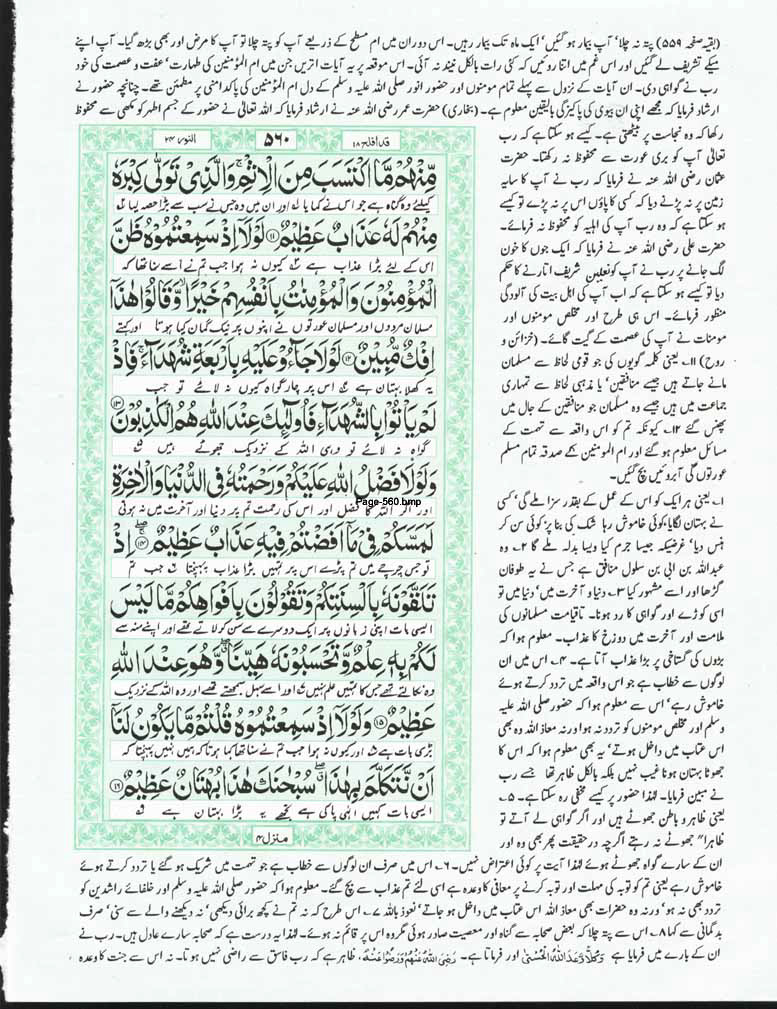 (بقیہ صفحہ ۵۵۹) پتہ نہ چلا' آپ بیمار ہو گئیں' ایک ماہ تک بیمار رہیں۔ اس دوران میں ام مسطح کے ذریعے آپ کو پتہ چلا تو آپ کا مرض اور بھی بڑھ گیا۔ آپ اپنے
میکے تشریف لے گئیں اور اس غم میں اتنا روئیں کہ کئی رات بالکل نیند نہ آئی۔ اس موقعہ پر یہ آیات اتریں جن میں ام المؤمنین کی طہارت' عفت و عصمت کی خود
رب نے گواہی دی۔ ان آیات کے نزول سے پہلے تمام مومنوں اور حضور انور صلی اللہ علیہ وسلم کے دل ام المؤمنین کی پاکدامنی پر مطمئن تھے۔ چنانچہ حضور نے
ارشاد فرمایا کہ مجھے اپنی ان بیوی کی پاکیزگی بالیقین معلوم ہے۔ (بخاری) حضرت عمر رضی اللہ عنہ نے ارشاد فرمایا کہ اللہ تعالیٰ نے حضور کے جسم اطہر کو مکھی سے محفوظ
رکھا کہ وہ نجاست پر بیٹھتی ہے۔ کیسے ہو سکتا ہے کہ رب
تعالیٰ آپ کو بری عورت سے محفوظ نہ رکھتا۔ حضرت
عثمان رضی اللہ عنہ نے فرمایا کہ رب نے آپ کا سایہ
زمین پر نہ پڑنے دیا کہ کسی کا پاؤں اس پر نہ پڑے تو کیسے
ہو سکتا ہے کہ وہ رب آپ کی اہلیہ کو محفوظ نہ فرمائے۔
حضرت علی رضی اللہ عنہ نے فرمایا کہ ایک جوں کا خون
لگ جانے پر رب نے آپ کو نعلین شریف اتارنے کا حکم
دیا تو کیسے ہو سکتا ہے کہ اب آپ کی اہل بیت کی آلودگی
منظور فرمائے۔ اس ہی طرح اور مخلص مومنوں اور
مومنات نے آپ کی عصمت کے گیت گائے۔ (خزائن و
روح) ۱۱۔ یعنی کلمہ گویوں کی جو قومی لحاظ سے مسلمان
مانے جاتے ہیں جیسے منافقین' یا مذہبی لحاظ سے تمہاری
جماعت میں ہیں جیسے وہ مسلمان جو منافقین کے جال میں
پھنس گئے ۱۲۔ کیونکہ تم کو اس واقعہ سے تہمت کے
مسائل معلوم ہو گئے اور ام المومنین کے صدقہ تمام مسلم
عورتوں کی آبروئیں بچ گئیں۔
۱۔ یعنی ہر ایک کو اس کے عمل کے بقدر سزا ملے گی' کسی
نے بہتان لگایا' کوئی خاموش رہا شک کی بنا پر' کوئی سن کر
ہنس دیا' غرضیکہ جیسا جرم کیا ویسا بدلہ ملے گا ۲۔ وہ
عبداللہ بن ابی بن سلول منافق ہے جس نے یہ طوفان
گڑھا اور اسے مشہور کیا ۳۔ دنیا و آخرت میں' دنیا میں تو
اسی کوڑے اور گواہی کا رد ہونا۔ تاقیامت مسلمانوں کی
ملامت اور آخرت میں دوزخ کا عذاب۔ معلوم ہوا کہ
بڑوں کی گستاخی پر بڑا عذاب آتا ہے۔ ۴۔ اس میں ان
لوگوں سے خطاب ہے جو اس واقعہ میں تردد کرتے ہوئے
خاموش رہے' اس سے معلوم ہوا کہ حضور صلی اللہ علیہ
وسلم اور مخلص مومنوں کو تردد نہ ہوا ورنہ معاذ اللہ وہ بھی
اس عتاب میں داخل ہوتے' یہ بھی معلوم ہوا کہ اس کا
جھوٹا بہتان ہونا غیب نہیں بلکہ بالکل ظاہر تھا جسے رب
نے مبین فرمایا۔ لہٰذا حضور پر کیسے مخفی رہ سکتا ہے۔ ۵۔
یعنی ظاہر و باطن جھوٹے ہیں اور اگر گواہی لے آتے تو
ظاہراً جھوٹے نہ رہتے اگرچہ در حقیقت پھر بھی وہ اور
قد افلح ۱۸ ۵۶۰ النور ۲۴
مِنْهُمْ مَّا اكْتَسَبَ مِنَ الْاِثْمِ وَالَّذِیْ تَوَلّٰی كِبْرَهٗ
کیلئے وہ گناہ ہے جو اس نے کمایا ۱ اور ان میں وہ جس نے سب سے بڑا حصہ لیا ۲
مِنْهُمْ لَهٗ عَذَابٌ عَظِیْمٌ ۝۱۱ لَوْلَاۤ اِذْ سَمِعْتُمُوْهُ ظَنَّ
اس کے لئے بڑا عذاب ہے ۳ کیوں نہ ہوا جب تم نے اسے سنا تھا کہ
الْمُؤْمِنُوْنَ وَالْمُؤْمِنٰتُ بِاَنْفُسِهِمْ خَیْرًا ۙ وَّقَالُوْا هٰذَاۤ
مسلمان مردوں اور مسلمان عورتوں نے اپنوں پر نیک گمان کیا ہوتا اور کہتے
اِفْكٌ مُّبِیْنٌ ۝۱۲ لَوْلَا جَآءُوْ عَلَیْهِ بِاَرْبَعَةِ شُهَدَآءَ ۚ فَاِذْ
یہ کھلا بہتان ہے ۴ اس پر چار گواہ کیوں نہ لائے تو جب
لَمْ یَاْتُوْا بِالشُّهَدَآءِ فَاُولٰٓئِكَ عِنْدَ اللّٰهِ هُمُ الْكٰذِبُوْنَ ۝۱۳
گواہ نہ لائے تو وہی اللہ کے نزدیک جھوٹے ہیں ۵
وَلَوْلَا فَضْلُ اللّٰهِ عَلَیْكُمْ وَرَحْمَتُهٗ فِی الدُّنْیَا وَالْاٰخِرَةِ
Page-560.bmp
اور اگر اللہ کا فضل اور اس کی رحمت تم پر دنیا اور آخرت میں نہ ہوتی
لَمَسَّكُمْ فِیْ مَاۤ اَفَضْتُمْ فِیْهِ عَذَابٌ عَظِیْمٌ ۝۱۴ اِذْ
تو جس چرچے میں تم پڑے اس پر تمہیں بڑا عذاب پہنچتا ۶ جب تم
تَلَقَّوْنَهٗ بِاَلْسِنَتِكُمْ وَتَقُوْلُوْنَ بِاَفْوَاهِكُمْ مَّا لَیْسَ
ایسی بات اپنی زبانوں پر ایک دوسرے سے سن کر لاتے تھے اور اپنے منہ سے
لَكُمْ بِهٖ عِلْمٌ وَّتَحْسَبُوْنَهٗ هَیِّنًا ۖ وَّهُوَ عِنْدَ اللّٰهِ
وہ نکالتے تھے جس کا تمہیں علم نہیں ۷ اور اسے سہل سمجھتے تھے اور وہ اللہ کے نزدیک
عَظِیْمٌ ۝۱۵ وَلَوْلَاۤ اِذْ سَمِعْتُمُوْهُ قُلْتُمْ مَّا یَكُوْنُ لَنَاۤ
بڑی بات ہے ۸ اور کیوں نہ ہوا جب تم نے سنا تھا کہا ہوتا کہ ہمیں نہیں پہنچتا کہ
اَنْ نَّتَكَلَّمَ بِهٰذَا ۖ سُبْحٰنَكَ هٰذَا بُهْتَانٌ عَظِیْمٌ ۝۱۶
ایسی بات کہیں الٰہی پاکی ہے تجھے یہ بڑا بہتان ہے ۹
منزل ۴
ان کے سارے گواہ جھوٹے ہوئے لہٰذا آیت پر کوئی اعتراض نہیں۔ ۶۔ اس میں صرف ان لوگوں سے خطاب ہے جو تہمت میں شریک ہو گئے یا تردد کرتے ہوئے
خاموش رہے یعنی تم کو توبہ کی مہلت اور توبہ کرنے پر معافی کا وعدہ ہے اسی لئے تم عذاب سے بچ گئے۔ معلوم ہوا کہ حضور صلی اللہ علیہ وسلم اور خلفائے راشدین کو
تردد بھی نہ ہوا' ورنہ وہ حضرات بھی معاذ اللہ اس عتاب میں داخل ہو جاتے' نعوذ باللہ ۷۔ اس طرح کہ نہ تم نے کچھ برائی دیکھی' نہ دیکھنے والے سے سنی' صرف
بدگمانی سے کہا ۸۔ اس سے پتہ چلا کہ بعض صحابہ سے گناہ اور معصیت صادر ہوئی مگر وہ اس پر قائم نہ ہوئے۔ لہٰذا یہ درست ہے کہ صحابہ سارے عادل ہیں۔ رب نے
ان کے بارے میں فرمایا ہے وَكُلًّا وَّعَدَ اللّٰهُ الْحُسْنٰی اور فرماتا ہے۔ رَضِیَ اللّٰهُ عَنْهُمْ وَرَضُوْا عَنْهُ، ظاہر ہے کہ رب فاسق سے راضی نہیں ہوتا۔ نہ اس سے جنت کا وعدہ